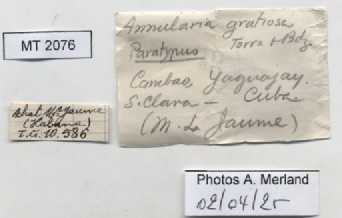 MT 2076
Annularia gratiosa
Torre & Bdz
Paratypus
Cambao, Yaguajay.
S. Clara - Cuba
(M. L. Jaume)
Achat M. Jaume
(Habana)
I.G. 10.586
Photos A. Merland
02/04/25